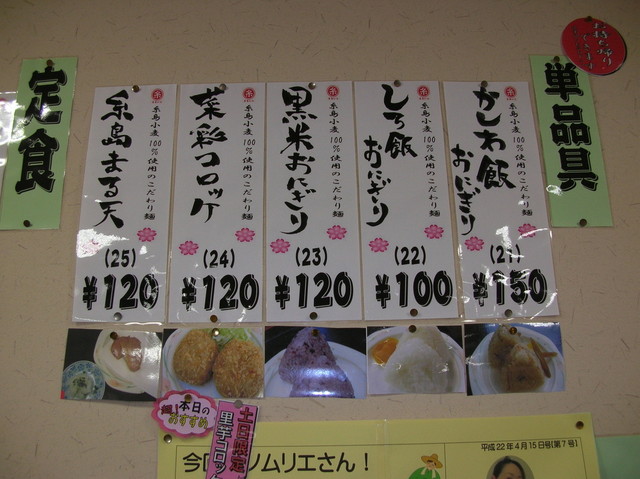 お持ち帰り
できます
単品具
糸島小麦100%使用のこだわり麺
かしわ飯
おにぎり
(21)
¥150
糸島小麦100%使用のこだわり麺
しろ飯
おにぎり
(22)
¥100
糸島小麦100%使用のこだわり麺
黒米おにぎり
(23)
¥120
糸島小麦100%使用のこだわり麺
菜彩コロッケ
(24)
¥120
糸島小麦100%使用のこだわり麺
糸島まる天
(25)
¥120
定食
本日の
おすすめ
土日限定
里芋コロッ
平成22年4月15日号(第7号)
ソムリエさん!